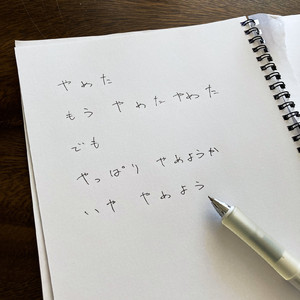 やめた
もう やめた やめた
でも
やっぱり やめようか
いや やめよう